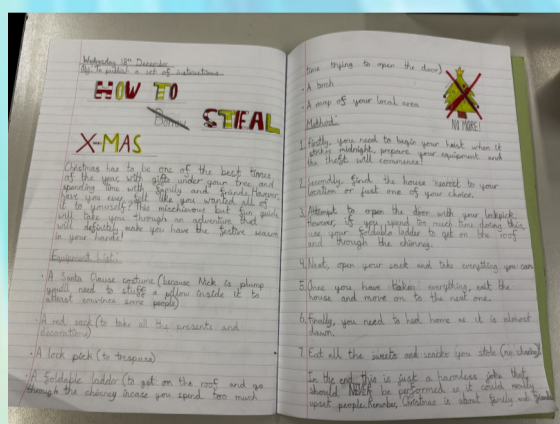 Wednesday 18th December
Obj: To publish a set of instructions.
HOW TO
Borrow STEAL
X-MAS
Christmas has to be one of the best times
of the year with gifts under your tree, and
spending time with family and friends. However,
have you ever felt like you wanted all of
it to yourself? This mischievous but fun guide
will take you through an adventure that
will definitely make you have the festive season
in your hands!
Equipment List:
• A Santa Clause costume (because Nick is plump
you'll need to stuff a pillow inside it to
atleast convince some people)
• A red sack (to take all the presents and
decorations)
• A lock pick (to trespass)
• A foldable ladder (to get on the roof and go
through the chimney incase you spend too much
time trying to open the door)
• A torch
• A map of your local area
NO MORE!
Method:
1. Firstly, you need to begin your heist when it
strikes midnight, prepare your equipment and
the theft will commence!
2. Secondly, find the house nearest to your
location or just one of your choice.
3. Attempt to open the door with your lockpick.
However, if you spend too much time doing this,
use your foldable ladder to get on the roof
and through the chimney.
4. Next, open your sack and take everything you can.
5. Once you have taken everything, exit the
house and move on to the next one.
6. Finally, you need to head home as it is almost
dawn.
7. Eat all the sweets and snacks you stole (no sharing)!
In the end, this is just a harmless joke that
should NEVER be performed as it could really
upset people. Remember, Christmas is about family and friends